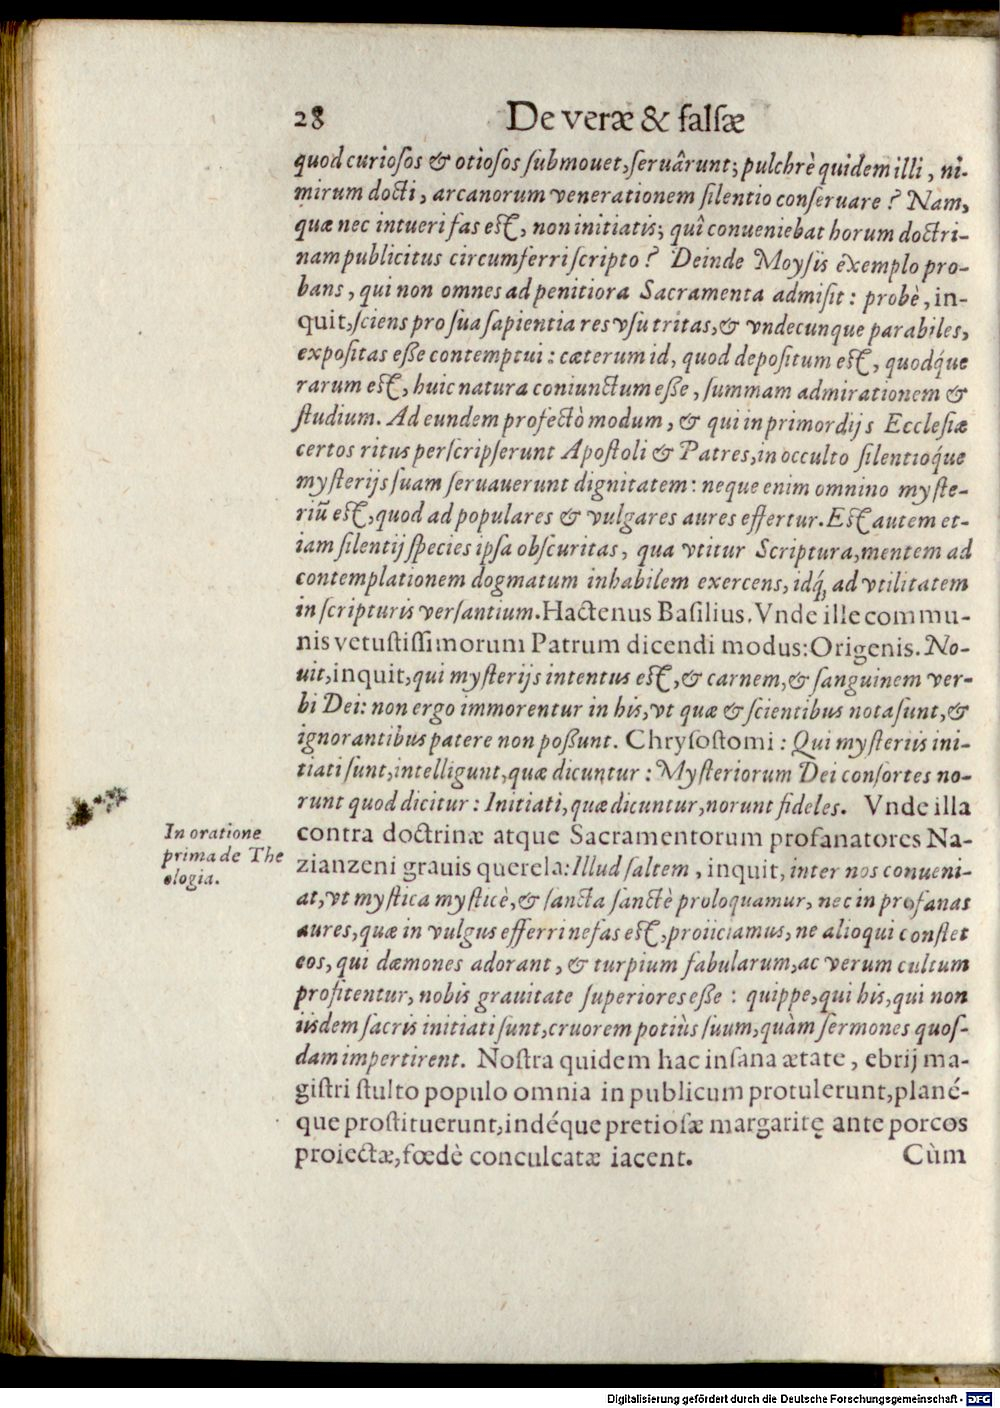 28 De veræ & falsæ
quod curiosos & otiosos submouet, seruârunt; pulchrè quidem illi, ni-
mirum docti, arcanorum venerationem silentio conseruare? Nam,
quæ nec intueri fas est, non initiatis; quî conueniebat horum doctri-
nam publicitus circumferri scripto? Deinde Moysis exemplo pro-
bans, qui non omnes ad penitiora Sacramenta admisit: probè, in-
quit, sciens pro sua sapientia res vsu tritas, & vndecunque parabiles,
expositas esse contemptui: cæterum id, quod depositum est, quodq́ue
rarum est, huic natura coniunctum esse, summam admirationem &
studium. Ad eundem profectò modum, & qui in primordijs Ecclesiæ
certos ritus perscripserunt Apostoli & Patres, in occulto silentioq́ue
mysterijs suam seruauerunt dignitatem: neque enim omnino myste-
riũ est, quod ad populares & vulgares aures effertur. Est autem et-
iam silentij species ipsa obscuritas, qua vtitur Scriptura, mentem ad
contemplationem dogmatum inhabilem exercens, idq́; ad vtilitatem
in scripturis versantium. Hactenus Basilius. Vnde ille commu-
nis vetustissimorum Patrum dicendi modus: Origenis. No-
uit, inquit, qui mysterijs intentus est, & carnem, & sanguinem ver-
bi Dei: non ergo immorentur in his, vt quæ & scientibus nota sunt, &
ignorantibus patere non possunt. Chrysostomi: Qui mysteriis ini-
tiati sunt, intelligunt, quæ dicuntur: Mysteriorum Dei consortes no-
runt quod dicitur: Initiati, quæ dicuntur, norunt fideles. Vnde illa
contra doctrinæ atque Sacramentorum profanatores Na-
zianzeni grauis querela: Illud saltem, inquit, inter nos conueni-
at, vt mystica mysticè, & sancta sanctè proloquamur, nec in profanas
aures, quæ in vulgus efferri nefas est, proiiciamus, ne alioqui constet
eos, qui dæmones adorant, & turpium fabularum, ac verum cultum
profitentur, nobis grauitate superiores esse: quippe, qui his, qui non
iisdem sacris initiati sunt, cruorem potiùs suum, quàm sermones quos-
dam impertirent. Nostra quidem hac insana ætate, ebrij ma-
gistri stulto populo omnia in publicum protulerunt, plané-
que prostituerunt, indéque pretiosæ margaritę ante porcos
proiectæ, fœdè conculcatæ iacent. Cùm
In oratione
prima de The
ologia.
Digitalisierung gefördert durch die Deutsche Forschungsgemeinschaft - DFG